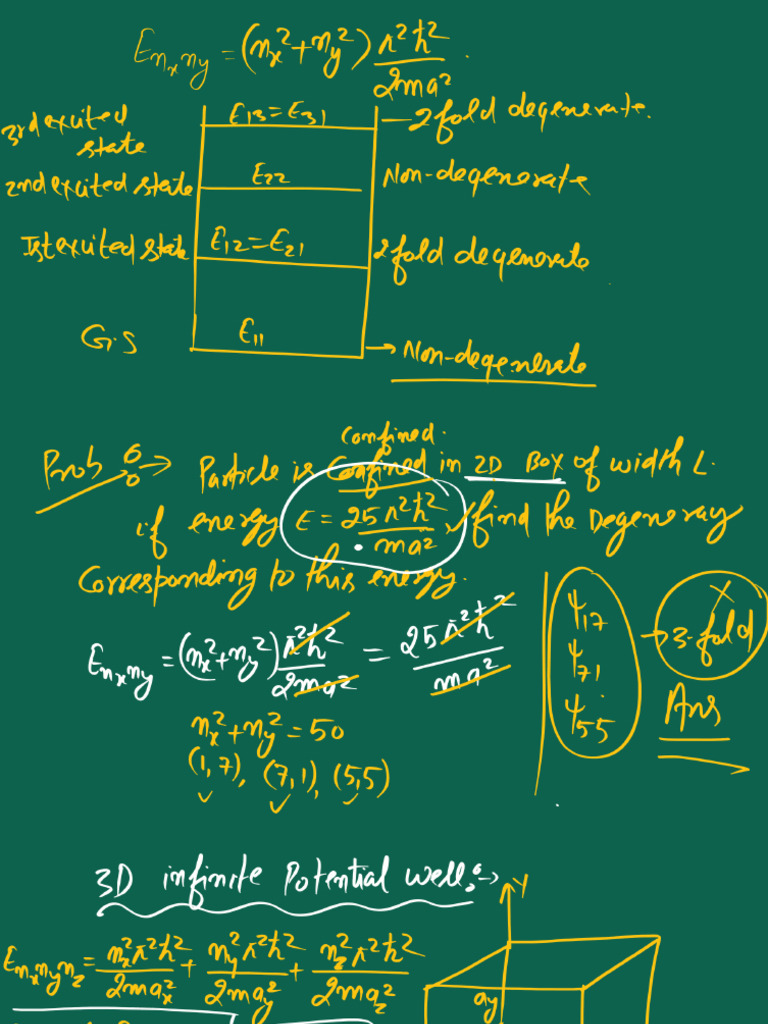 E_{n_x n_y} = (n_x² + n_y²) π²ħ² / 2ma² .
3rd excited state E₁₃ = E₃₁ — 2 fold degenerate.
2nd excited state E₂₂ Non-degenerate
Ist excited state E₁₂ = E₂₁ 2 fold degenerate
G.S E₁₁ → Non-degenerate
Confined.
Prob :→ Particle is Confined in 2D Box of width L.
if energy E = 25π²ħ² / ma², find the Degeneracy
Corresponding to this energy.
E_{n_x n_y} = (n_x² + n_y²) π²ħ² / 2ma² = 25π²ħ² / ma²
n_x² + n_y² = 50
(1, 7), (7, 1), (5, 5)
ψ₁₇
ψ₇₁ → 3-fold
ψ₅₅ Ans
3D infinite Potential well :→
Y
E_{n_x n_y n_z} = n_x²π²ħ² / 2ma_x² + n_y²π²ħ² / 2ma_y² + n_z²π²ħ² / 2ma_z²
a_y